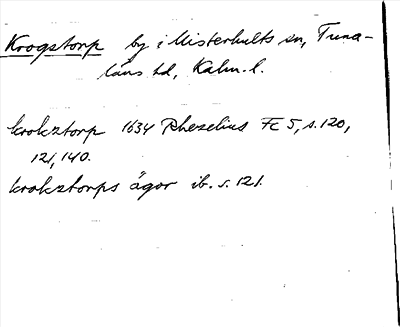 Krogstorp by i Misterhults sn, Tuna-
läns hd, Kalm. l.
krokztorp 1634 Rhezelius Fc 5, s. 120,
121, 140.
krokztorps ägor ib. s. 121.